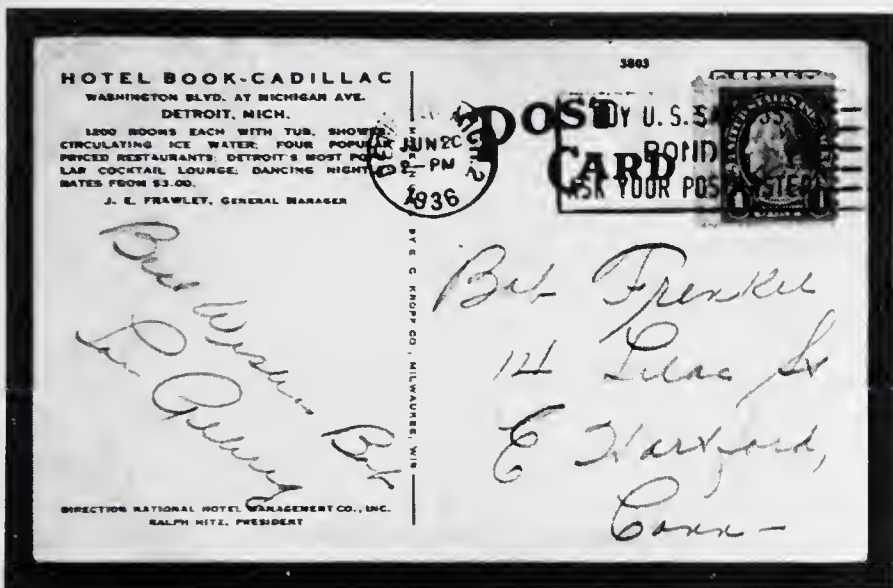 HOTEL BOOK-CADILLAC
WASHINGTON BLVD. AT MICHIGAN AVE.
DETROIT, MICH.
1200 ROOMS EACH WITH TUB, SHOWER,
CIRCULATING ICE WATER; FOUR POPULAR
PRICED RESTAURANTS; DETROIT'S MOST POPU
LAR COCKTAIL LOUNGE; DANCING NIGHTLY
RATES FROM $3.00.
J. E. FRAWLEY, GENERAL MANAGER
Best Wishes Bob
Lou Gehrig
DIRECTION NATIONAL HOTEL MANAGEMENT CO., INC.
RALPH HITZ, PRESIDENT
BY E. C. KROPP CO., MILWAUKEE, WIS
3803
POST
CARD
JUN 20
PM
1936
BUY U.S.
BOND
ASK YOUR POSTMASTER
Bob Frenkel
14 Lilac St
E Hartford,
Conn-